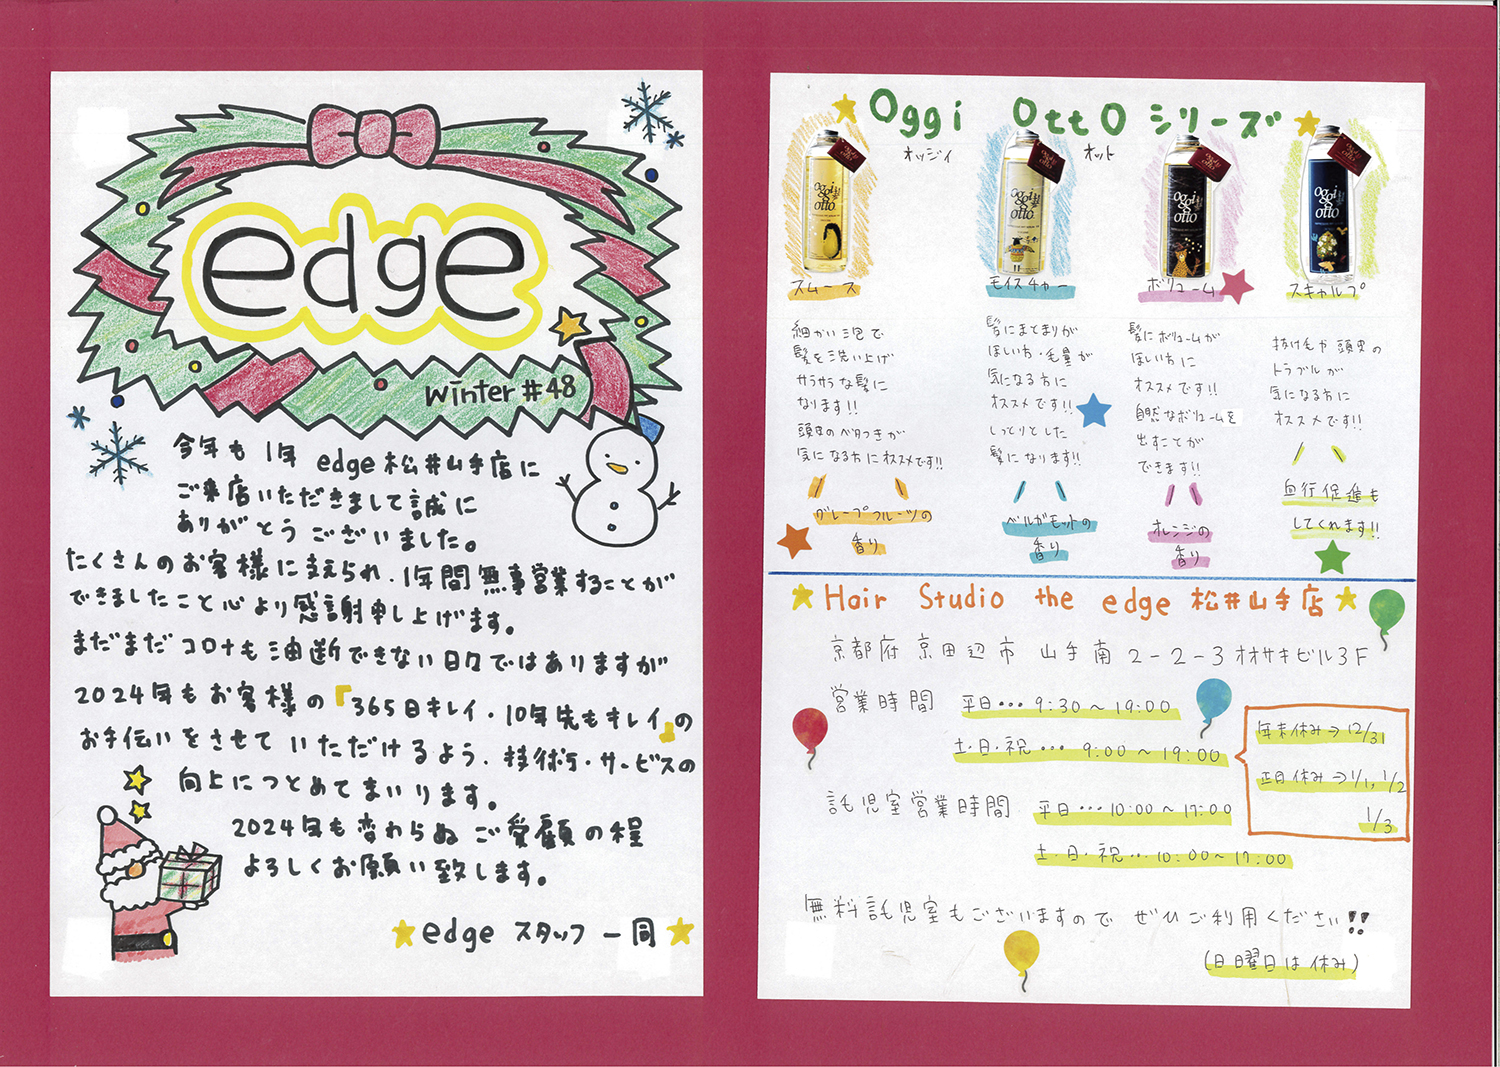 edge
Winter #48
今年も 1年 edge 松井山手店に
ご来店いただきまして誠に
ありがとうございました。
たくさんのお客様に支えられ、1年間無事営業することが
できましたこと心より感謝申し上げます。
まだまだコロナも油断できない日々ではありますが
2024年もお客様の『365日キレイ・10年先もキレイ』の
お手伝いをさせていただけるよう、技術・サービスの
向上につとめてまいります。
2024年も変わらぬご愛顧の程
よろしくお願い致します。
edge スタッフ一同
Oggi Otto シリーズ
オッジィ オット
スムース
細かい泡で
髪を洗い上げ
サラサラな髪に
なります!!
頭皮のベタつきが
気になる方にオススメです!!
グレープフルーツの
香り
モイスチャー
髪にまとまりが
ほしい方・毛量が
気になる方に
オススメです!!
しっとりとした
髪になります!!
ベルガモットの
香り
ボリューム
髪にボリュームが
ほしい方に
オススメです!!
自然なボリュームを
出すことが
できます!!
オレンジの
香り
スキャルプ
抜け毛や頭皮の
トラブルが
気になる方に
オススメです!!
血行促進も
してくれます!!
Hair Studio the edge 松井山手店
京都府京田辺市山手南2-2-3オオサキビル3F
営業時間 平日…9:30〜19:00
土・日・祝…9:00〜19:00
年末休み→12/31
正月休み→1/1, 1/2
1/3
託児室営業時間 平日…10:00〜17:00
土・日・祝…10:00〜17:00
無料託児室もございますので ぜひご利用ください!!
(日曜日は休み)